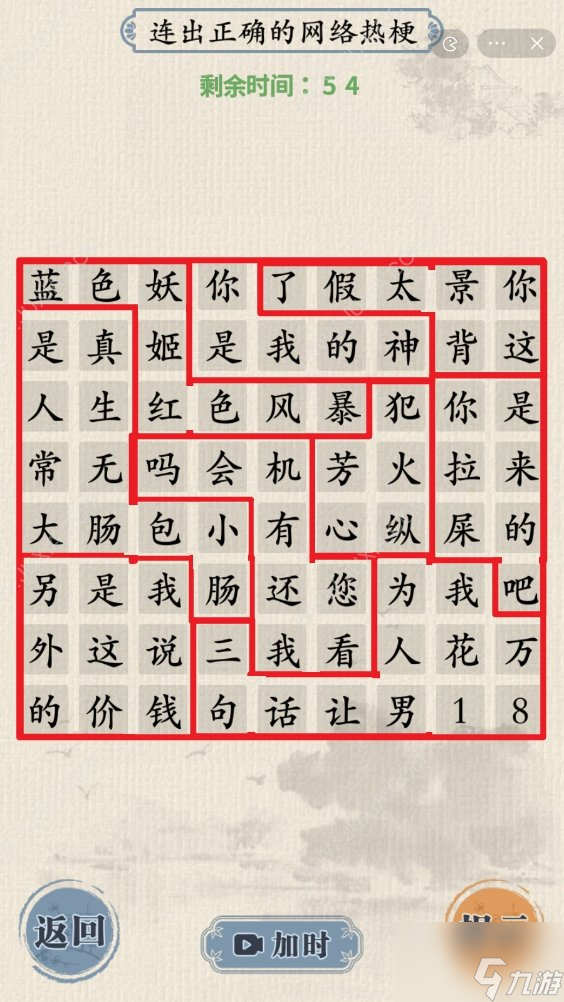 连出正确的网络热梗
剩余时间：54
蓝色妖你了假太景你
是真姬是我的神背这
人生红色风暴犯你是
常无吗会机芳火拉来
大肠包小有心纵屎的
另是我肠还您为我吧
外这说三我看人花万
的价钱句话让男18
返回
加时
九游